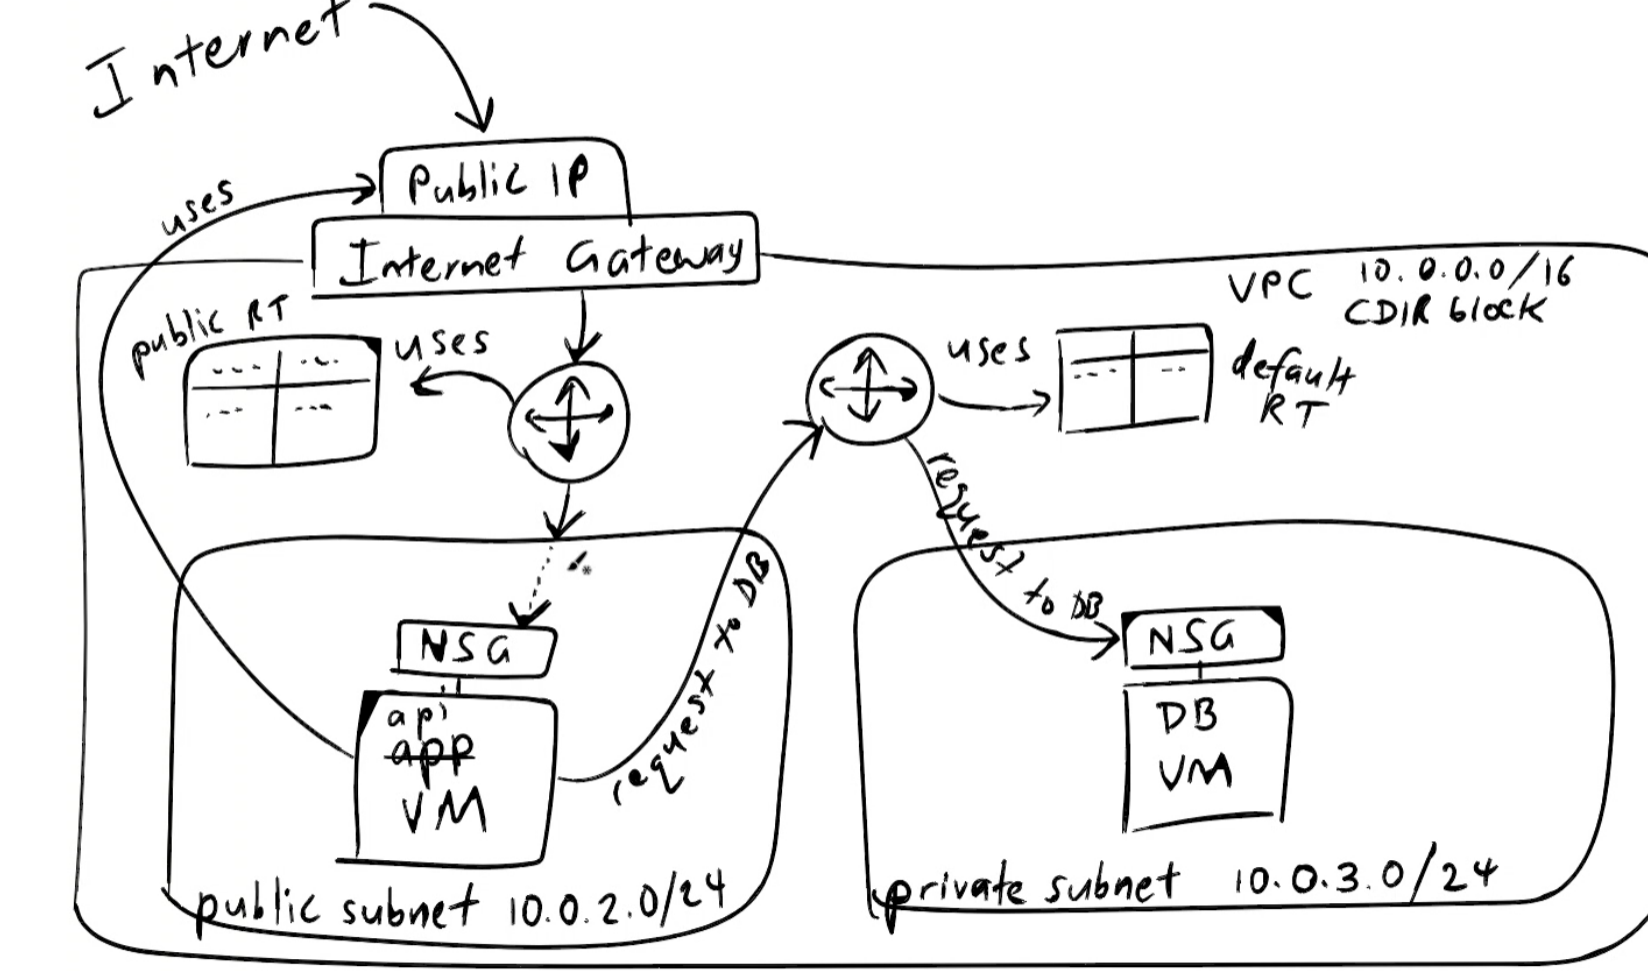 Internet
Public IP
uses
Internet Gateway
VPC 10.0.0.0/16
CDIR block
public RT
uses
uses
default
RT
request to DB
request to DB
NSG
api
app
VM
NSG
DB
VM
public subnet 10.0.2.0/24
private subnet 10.0.3.0/24